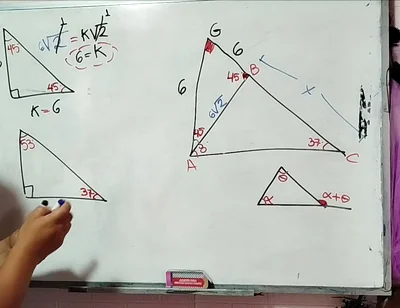 45
6√2 = K√2
6=K
45
K=6
53
37
G
6
45
B
X
6
6√2
45
8
37
A
C
θ
α
α+θ